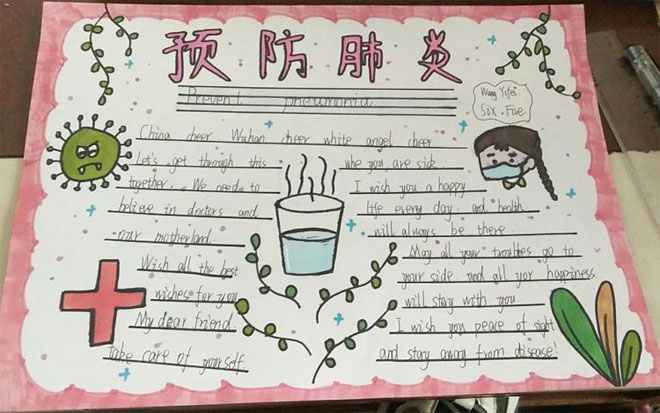 预防肺炎
Prevent pneumonia.
Wang Yifei
Six.Five
China cheer Wuhan cheer white angel cheer
Let's get through this
together. We need to
believe in doctors and
our motherland.
Wish all the best
wishes for you
My dear friend.
take care of yourself.
whe you are sick
I wish you a happy
life every day and health
will always be there.
May all your troubles go to
your side and all yor happiness
will stay with you
I wish you peace of sight
and stay away from disease!